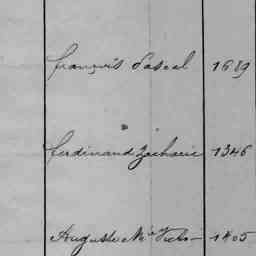 françois Pascal 1689
ferdinand Zacharie 1346
Auguste Mie 1805